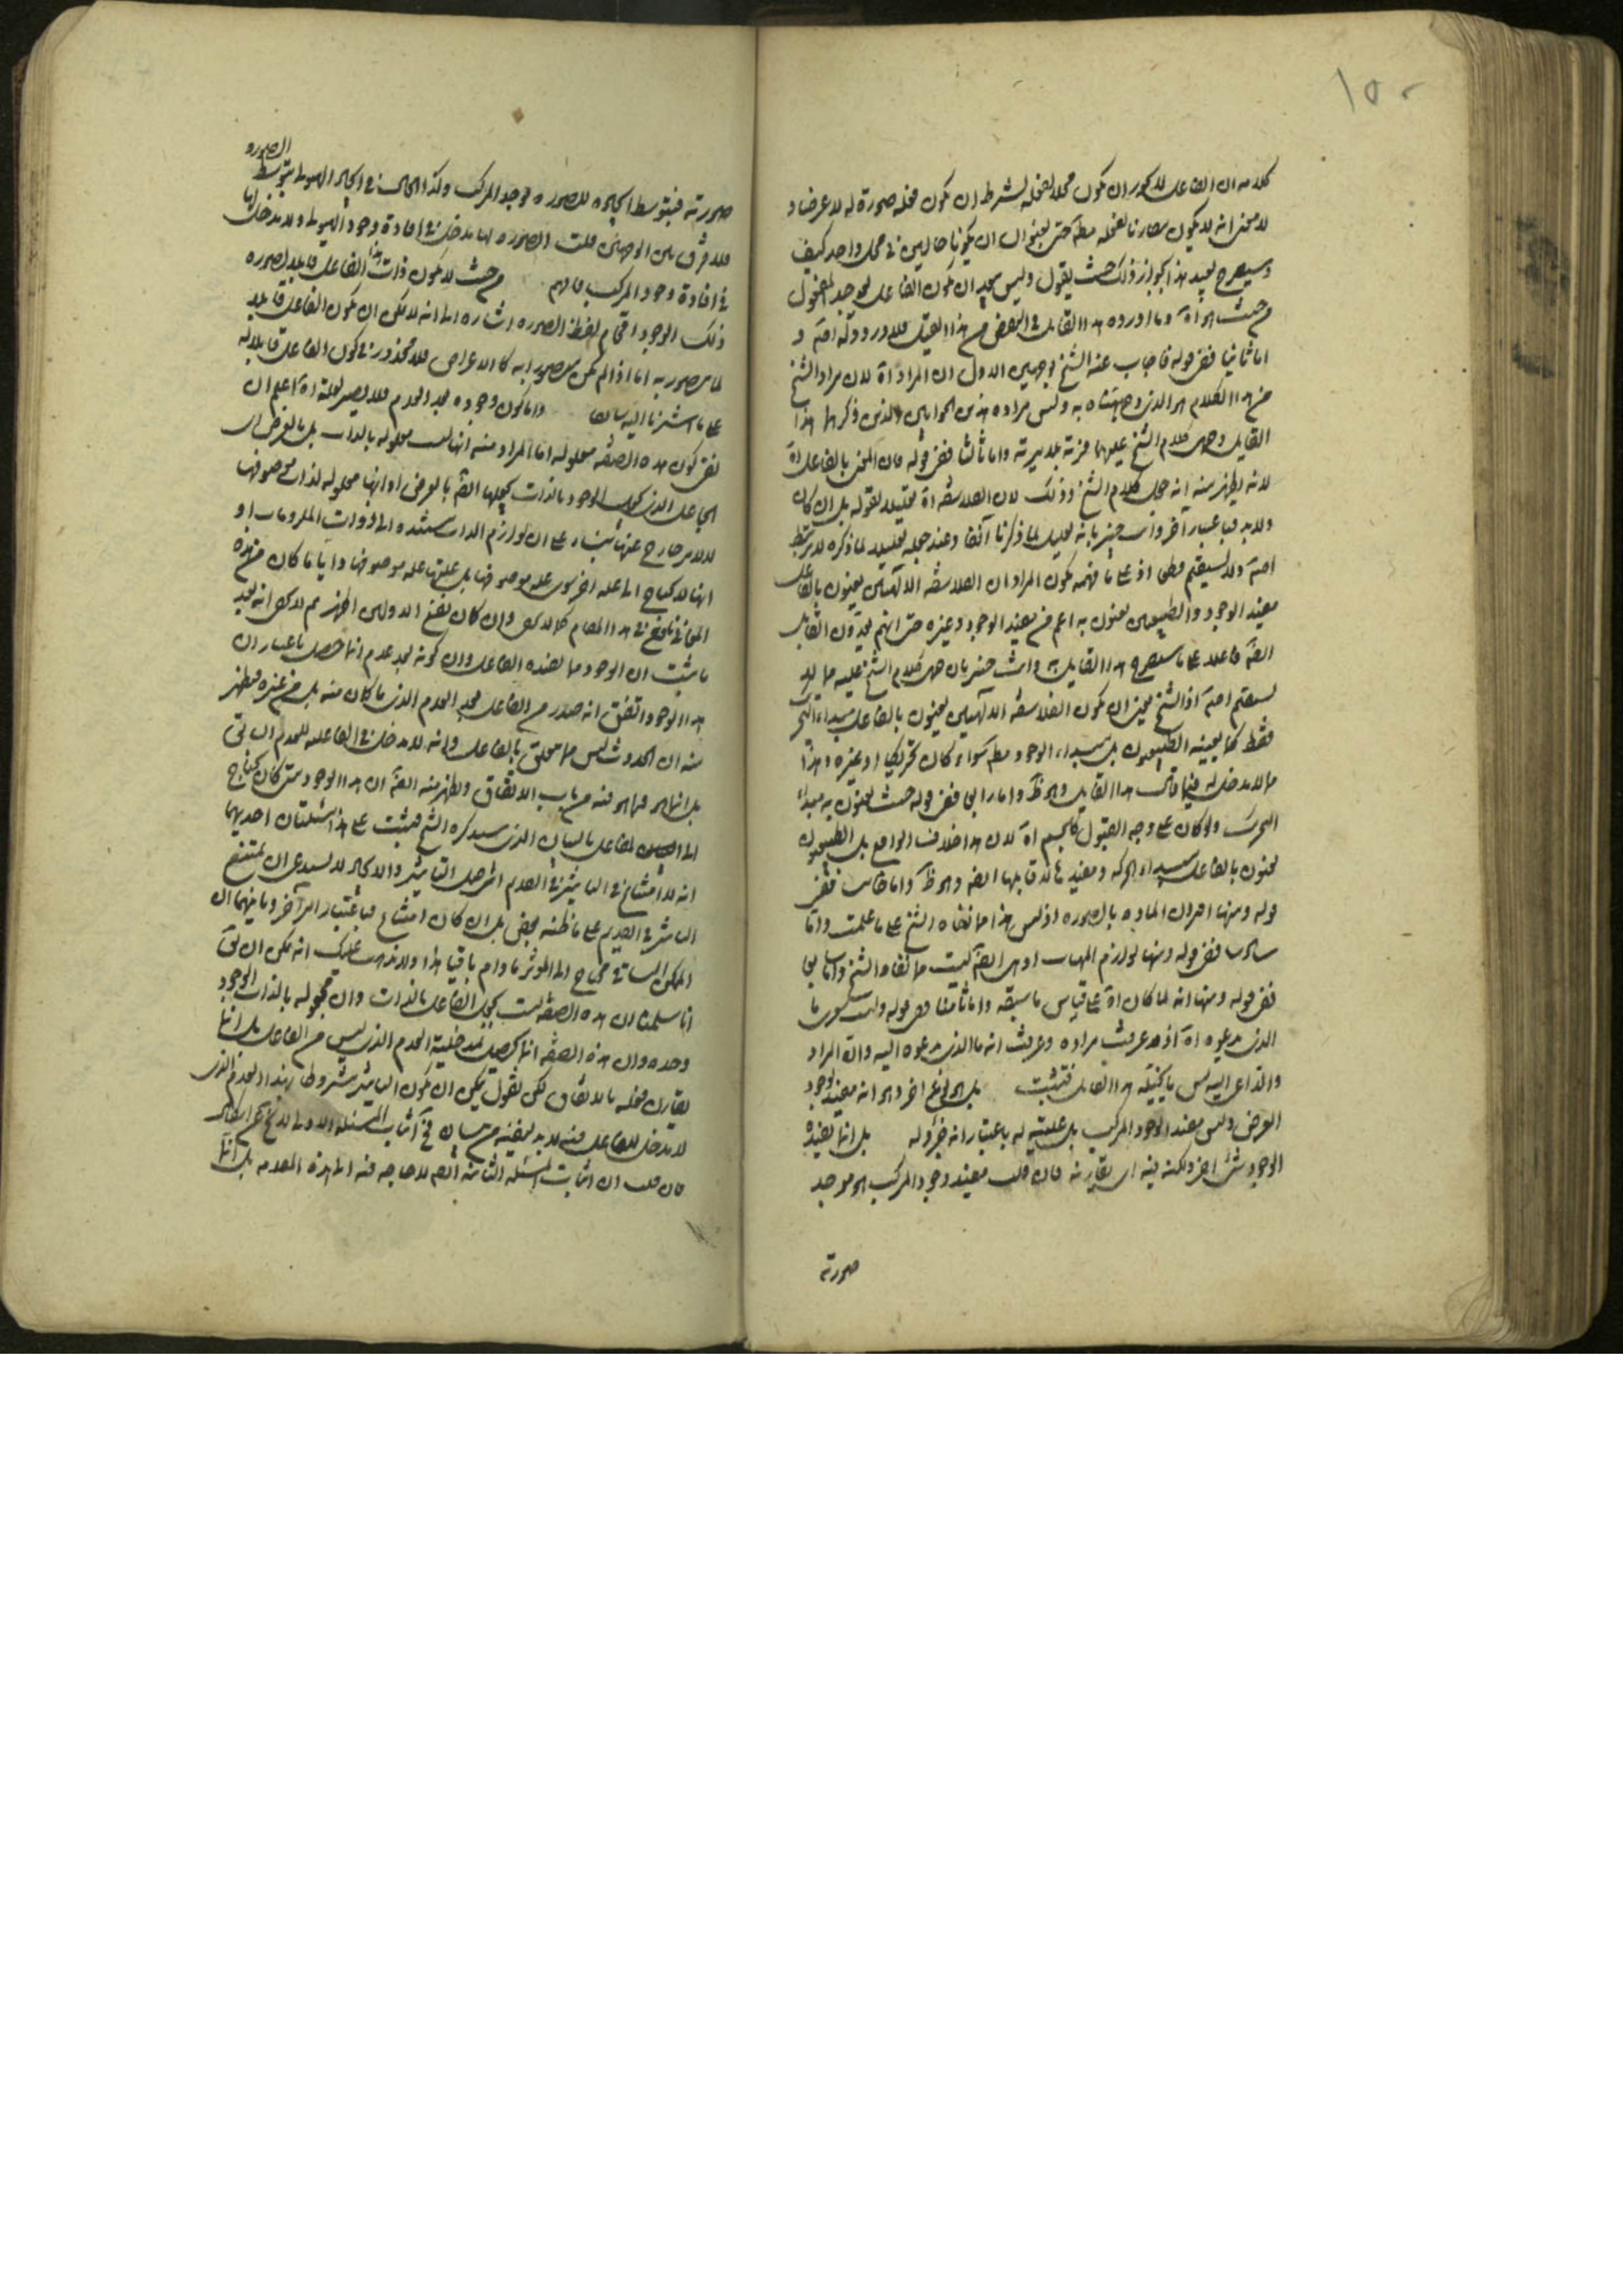 ١٥٠
كلامه ان الفاعل لا يجوز ان يكون محلا لفعله بشرط ان يكون فعله صورة له لا عرضا و
لا معنى انه لا يكون مقارنا لفعله مطلقا حتى يجوز ان يكونا حالين في محل واحد كيف
وسيصرح بعيد هذا بجواز ذلك حيث يقول وليس يبعد ان يكون الفاعل يوجد المفعول
من حيث هو اه وما اورده هذا القايل في البعض من هذا القبيل فلا ورود له اصلا و
اما ثانيا ففي قوله فاجاب عنه الشيخ بوجهين الاول ان المراد اه لان مراد الشيخ
من هذا الكلام هو الذي وجهناه به وليس مراده هذين الجوابين الذين ذكرهما هذا
القايل وحمل كلام الشيخ عليهما فرية بلا مرية واما ثالثا ففي قوله فان المعنى بالفاعل اه
لانه يظهر منه انه حمل كلام الشيخ وذلك لان الفلاسفة اه تعليلا لقوله بل ان كان
ولا بد فباعتبار آخر وانت خبير بانه تعليل لما ذكرنا آنفا وعند جعله تعليلا لما ذكره لا يرتبط
اصلا ولا يستقيم قطعا اذ على ما فهمه يكون المراد ان الفلاسفة الالهيين يعنون بالفاعل
مفيد الوجود والطبيعيين يعنون به اعم من مفيد الوجود وغيره حتى انهم يعدون القابل
ايضا فاعلا على ما سيصرح هذا القايل به وانت خبير بان حمل كلام الشيخ عليه مما لا
يستقيم اصلا اذ الشيخ يعني ان يكون الفلاسفة الالهيين يعنون بالفاعل مبداء التحريك
فقط كما يعنيه الطبيعيون بل مبداء الوجود مطلقا سواء كان تحريكيا او غيره وهذا
مما لا مدخل له فيما قال هذا القايل وهو ظ واما رابعا ففي قوله حيث يعنون به مبداء
التحريك ولو كان على وجه القبول كالجسم اه لان هذا خلاف الواقع بل الطبيعيون
يعنون بالفاعل مبداء الحركة ومفيدها لا قابلها ايضا وهو ظ واما خامسا ففي
قوله ومنها اقتران المادة بالصورة اذ ليس هذا مما نفاه الشيخ على ما علمت واما
سادسا ففي قوله ومنها لوازم المهيات اذ هي ايضا ليست مما نفاه الشيخ واما سابعا
ففي قوله ومنها انه لما كان اه على قياس ما سبقه واما ثامنا ففي قوله ولست سوى ما
الذي يدعوه اه اذ قد عرفت مراده وعرفت انه ما الذي يدعوه اليه وان المراد
والداعي اليه ليس ما يخيله هذا القايل فتثبت بل هو نوع اخر وهو انه مفيد لوجود
العرض وليس مفيد الوجود المركب بل علييته له باعتبار انه جزؤ له بل انما يفيده
الوجود شئ اخر ولكنه فيه اي يقارنه فان قلت مفيد وجود المركب هو موجد
صورته
صورته فبتوسط ايجاده للصورة يوجد المركب وكذا الحال في ايجاد الهيولى بتوسط
الصورة
فلا فرق بين الوجهين قلت الصورة لها مدخل في افادة وجود الهيولى ولا مدخل لها
في افادة وجود المركب فافهم من حيث لا يكون ذات هذا الفاعل قابلا لصورة
ذلك الوجود اقحام لفظ الصورة اشارة الى انه لا يمكن ان يكون الفاعل قابلا
لما يتصور به اما اذا لم يكن متصورا به كالاعراض فلا محذور في كون الفاعل قابلا له
على ما اشرنا اليه سابقا واما كون وجوده بعد العدم فلا يصير لعلة اه اعلم ان
نفي كون هذه الصفة معلولة اما المراد منه انها ليست معلولة بالذات بل بالعرض اي
الجاعل الذي يجعل الوجود بالذات يجعلها ايضا بالعرض او انها معلولة لذات موصوفها
لا لامر خارج عنها بناء على ان لوازم الذات مستندة الى ذوات الملزومات او
انها لا يحتاج الى علة اخرى سوى علة موصوفها بل علتها علة موصوفها وايا ما كان من هذه
المعاني نافع في هذا المقام كما لا يخفى وان كان بعض الاولين اظهر ثم لا يخفى انه بعد
ما ثبت ان الوجود مما يفيده الفاعل وان كونه بعد عدم انما حصل باعتبار ان
هذا الوجود اتفق انه صدر من الفاعل بعد العدم الذي ما كان منه بل من غيره فظهر
منه ان الحدوث ليس مما يتعلق بالفاعل وانه لا مدخل في الفاعلية للعدم السابق
بل انما هو مما هو فيه من باب الاتفاق ويظهر منه ايضا ان هذا الوجود متى كان يحتاج
الى الفاعل بالبيان الذي سيذكره الشيخ فيثبت على هذا مسئلتان احديهما
انه لا امتناع في التاثير في القديم اذ اصل التاثير والايجاد لا يستدعي ان يمتنع
التاثير في القديم على ما ظنه بعض بل ان كان امتناع فباعتبار امر آخر وثانيهما ان
الممكن الباقي محتاج الى المؤثر ما دام باقيا هذا ولا يذهب عليك انه يمكن ان يق
انا سلمنا ان هذه الصفة ليست بجعل الفاعل بالذات وان مجعوله بالذات الوجود
وحده وان هذه الصفة انما يحصل بمدخلية العدم الذي ليس من الفاعل بل انما
يقارن فعله بالاتفاق لكن نقول يمكن ان يكون التاثير مشروطا بهذا العدم الذي
لا مدخل للفاعل فيه فلا بد لنفيه من بيان في اثبات المسئلة الاولى
فان قلت ان اثبات المسئلة الثانية ايضا لا حاجة فيه الى هذه المقدمة بل انما